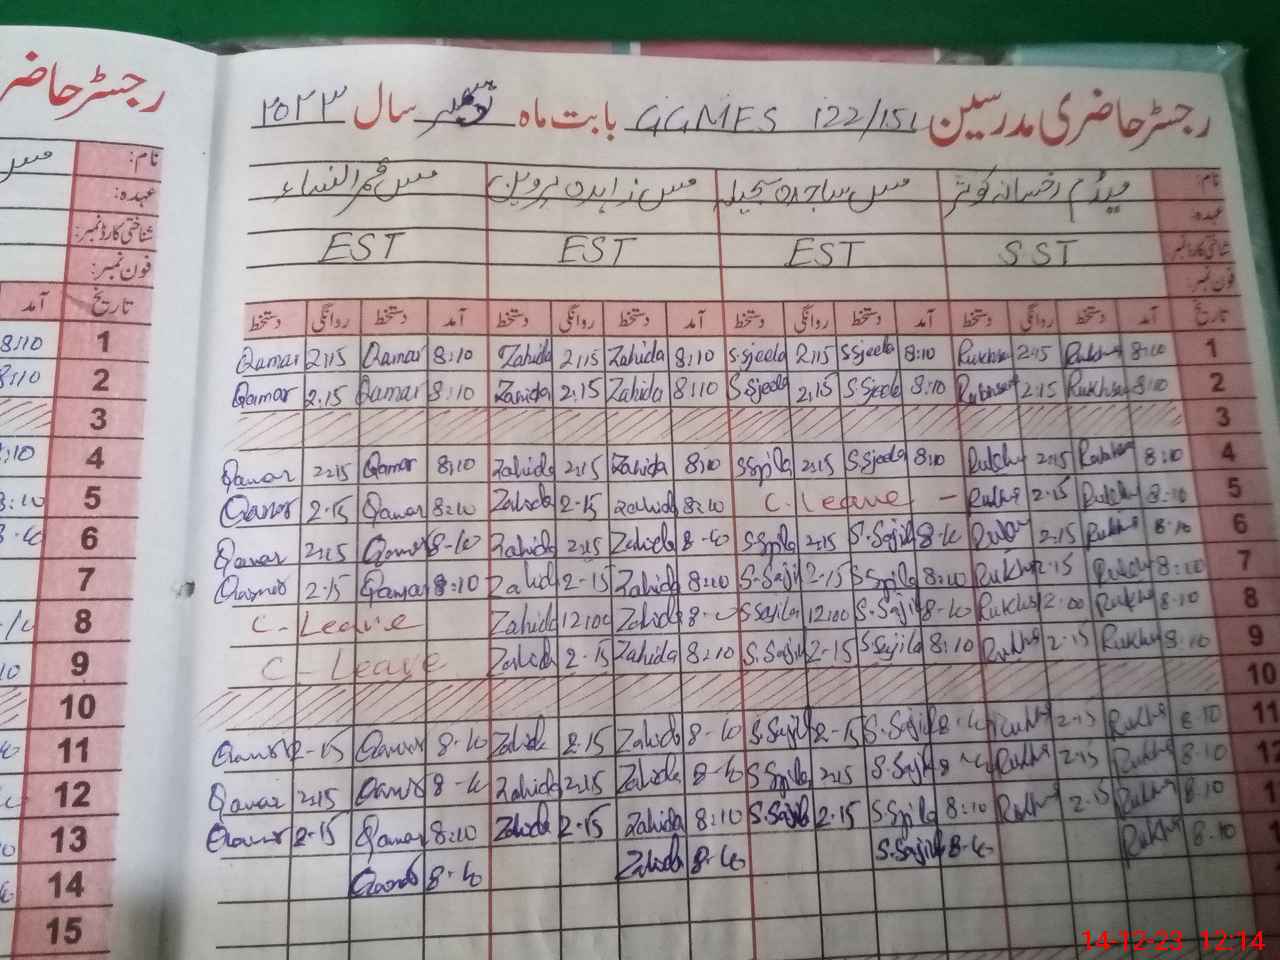 رجسٹر حاضری مدرسین GGMES 122/151 بابت ماہ دسمبر سال ۲۰۲۳
رجسٹر حاضر
نام: میڈم رخسانہ کوثر مس ساجدہ سجیلہ مس زاہدہ پروین مس قمر النساء
عہدہ:
شناختی کارڈ نمبر: SST EST EST EST
فون نمبر:
تاریخ آمد دستخط روانگی دستخط آمد دستخط روانگی دستخط آمد دستخط روانگی دستخط آمد دستخط روانگی دستخط
Qamar 2:15 Qamar 8:10 Zahida 2:15 Zahida 8:10 S.Sjeela 2:15 S Sjeela 8:10 Rukhsa 2:15 Rukhs 8:10 1
Qamar 2:15 Qamar 8:10 Zahida 2:15 Zahida 8:10 S.Sjeela 2:15 S.Sjeela 8:10 Rukhsa 2:15 Rukhsa 8:10 2
3
Qamar 2:15 Qamar 8:10 Zahida 2:15 Zahida 8:10 S Sjila 2:15 S.Sjeela 8:10 Rukhs 2:15 8:10 4
Qamar 2-15 Qamar 8:10 Zahida 2-15 Zahida 8:10 C. Leave - Rukhs 2-15 Rukhs 8:10 5
Qamar 2:15 Qamar 8-10 Zahida 2:15 Zahida 8-10 S Sjila 2:15 S.Sajila 8-10 2:15 Rukhs 8:10 6
Qamar 2-15 Qamar 8:10 Zahida 2-15 Zahida 8:10 S.Sajila 2-15 S Sjila 8:10 Rukhs 2-15 Rukhs 8:10 7
C- Leave Zahida 12:00 Zahida S Sajila 12:00 S.Sajila 8-10 Rukhs 12:00 Rukhs 8:10 8
C- Leave Zahida 2-15 Zahida 8:10 S.Sajila 2-15 S Sajila 8:10 Rukhs 2:15 Rukhs 8:10 9
10
Qamar 2-15 Qamar 8-10 Zahida 2-15 Zahida 8-10 S.Sajila 2-15 S.Sajila 8-10 Rukhs 2-15 Rukhs 8-10 11
Qamar 2:15 Qamar 8-10 Zahida 2:15 Zahida 8-10 S Sjila 2:15 S.Sajila 8-10 Rukhs 2:15 Rukhs 8:10 12
Qamar 2-15 Qamar 8:10 Zahida 2-15 Zahida 8:10 S.Sajila 2-15 S Sjila 8:10 Rukhs 2:15 Rukhs 8:10
Qamar 8-10 Zahida 8-10 S.Sajila 8-10 Rukhs 8:10
نام:
عہدہ:
شناختی کارڈ نمبر:
فون نمبر:
تاریخ آمد
8:10 1
8:10 2
3
8:10 4
8:10 5
8-10 6
7
8
9
10
11
12
13
14
15
14-12-23 12:14